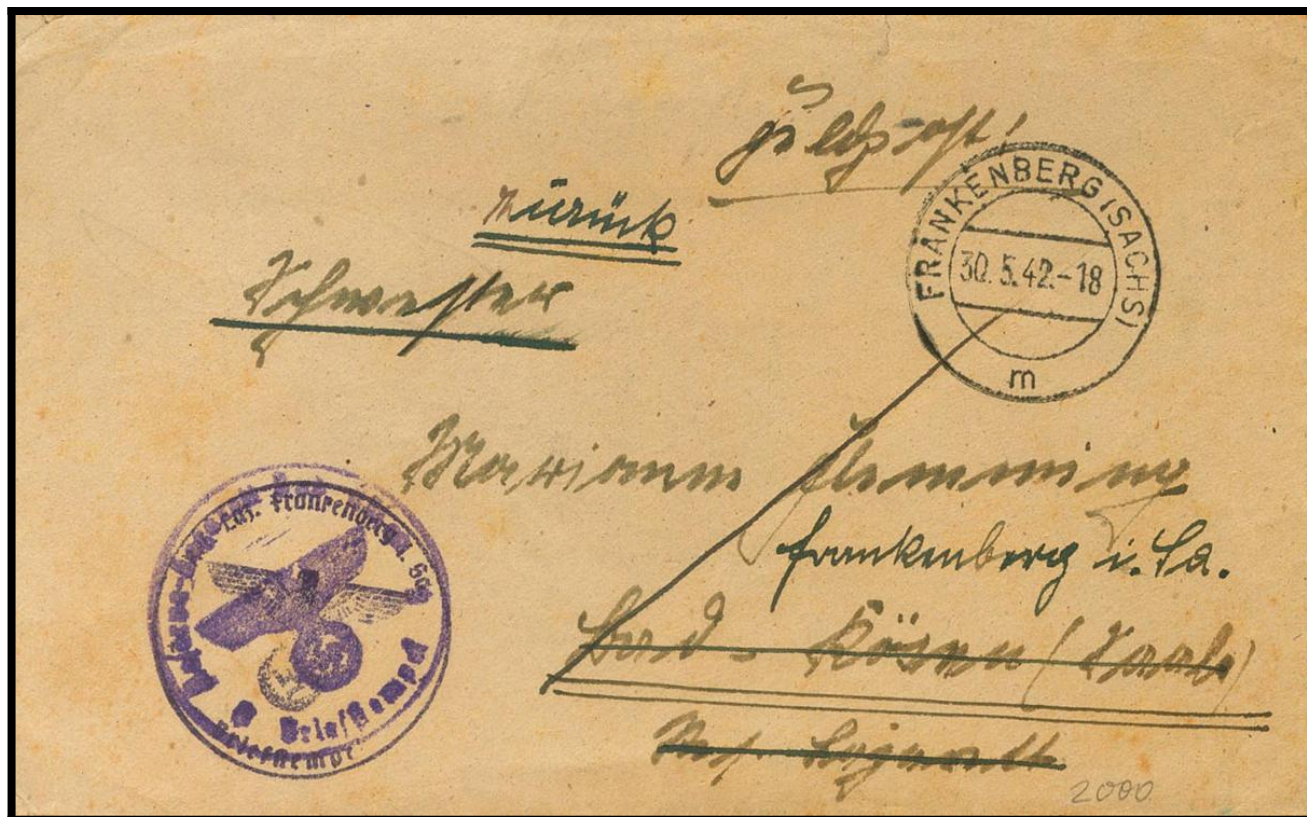 Feldpost!
zurück
Schwester
FRANKENBERG (SACHS)
30.5.42.-18
m
Marianne Flemming
Frankenberg i. Sa.
Bad-Kösen (Saale)
Res. Lazarett
Laz. Frankenberg i. Sa.
Briefstempel
Briefstempel
2000